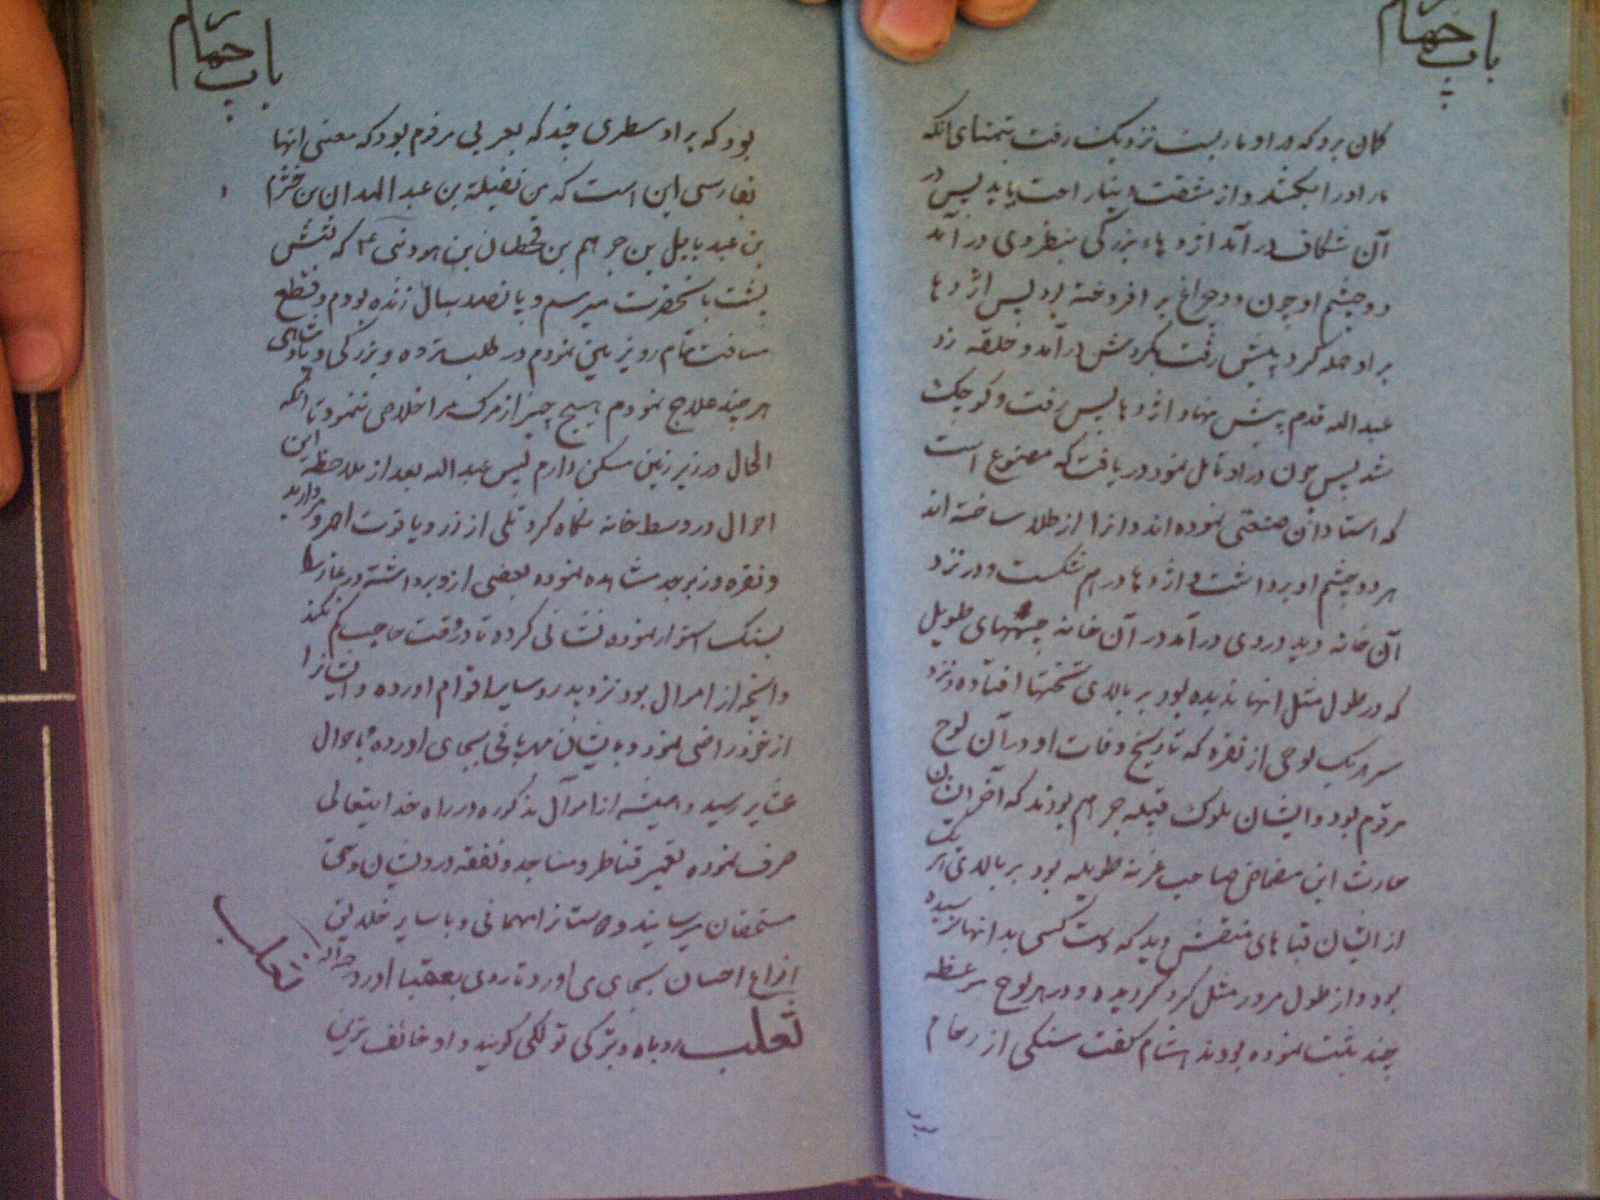 باب چهارم
کمان برد که در او مار بست نزدیک رفت بتمنای آنکه
مار او را بکشد و از مشقت دنیا راحت یابد پس در
آن شکاف در آمد اژدهاء بزرگی بنظر وی در آمد
دو چشم او چون دو چراغ بر افروخته بود پس اژدها
بر او حمله کرد پیش رفت بگردش در آمد و حلقه زد
عبد الله قدم پیش نهاد اژدها پس رفت و کوچک
شد پس چون در او تامل نمود دریافت که مصنوع است
که استادان صنعتی نموده اند و انرا از طلا ساخته اند
هر دو چشم او برداشت و اژدها در هم شکست و در نزد
آن خانه دید در وی در آمد در آن خانه جثهای طویل
که در طول مثل انها ندیده بود بر بالای تختها افتاده و نزد
سر هر یک لوحی از نقره که تاریخ وفات او در آن لوح
مرقوم بود و ایشان ملوک قبیله جرهم بودند که آخر ایشان
حارث ابن مضاض صاحب غربة طویله بود بر بالای هر یک
از ایشان قباهای منقش دید که دست کسی بد انها نرسیده
بود و از طول مرور مثل گرد گردیده و در هر لوح موعظه
چند ثبت نموده بودند هشام گفت سنگی از رخام
باب چهارم
بود که بر او سطری چند که بعربی مرقوم بود که معنی انها
بفارسی این است که من نفیلة بن عبد المدان بن خشرم
بن عبد یالیل بن جرهم بن قحطان بن هود نبی ع که شش
پشت بانحضرت میرسم و پانصد سال زنده بودم و قطع
مسافت تمام روی زمین نمودم در طلب ثروه و بزرگی و پادشاهی
هر چند علاج نمودم هیچ چیز از مرک مرا خلاص ننمود تا آنکه
الحال در زیر زمین مسکن دارم پس عبد الله بعد از ملاحظه این
احوال در وسط خانه نگاه کرد تلی از زر و یاقوت احمر و مروارید
و نقره و زبرجد مشاهده نموده بعضی از و برداشته در غار را
بسنک استوار نموده نشانی کرده تا در وقت حاجت گم نکند
و آنچه از اموال بود نزد پدر و سایر اقوام اورده و ایشانرا
از خود راضی نمود و با ایشان مهربانی بجای اورده باحوال
عشایر رسید و همیشه از اموال مذکوره در راه خدایتعالی
صرف نموده تعمیر قناطر و مساجد و نفقه درویشان و حق
مستحقان میرسانید و دوستانرا مهمانی و با سایر خلایق
انواع احسان بجای می اورد تا روی بعقبا اورد
ثعلب
ثعلب روباه و بترکی تولکی گویند و او خائف ترین